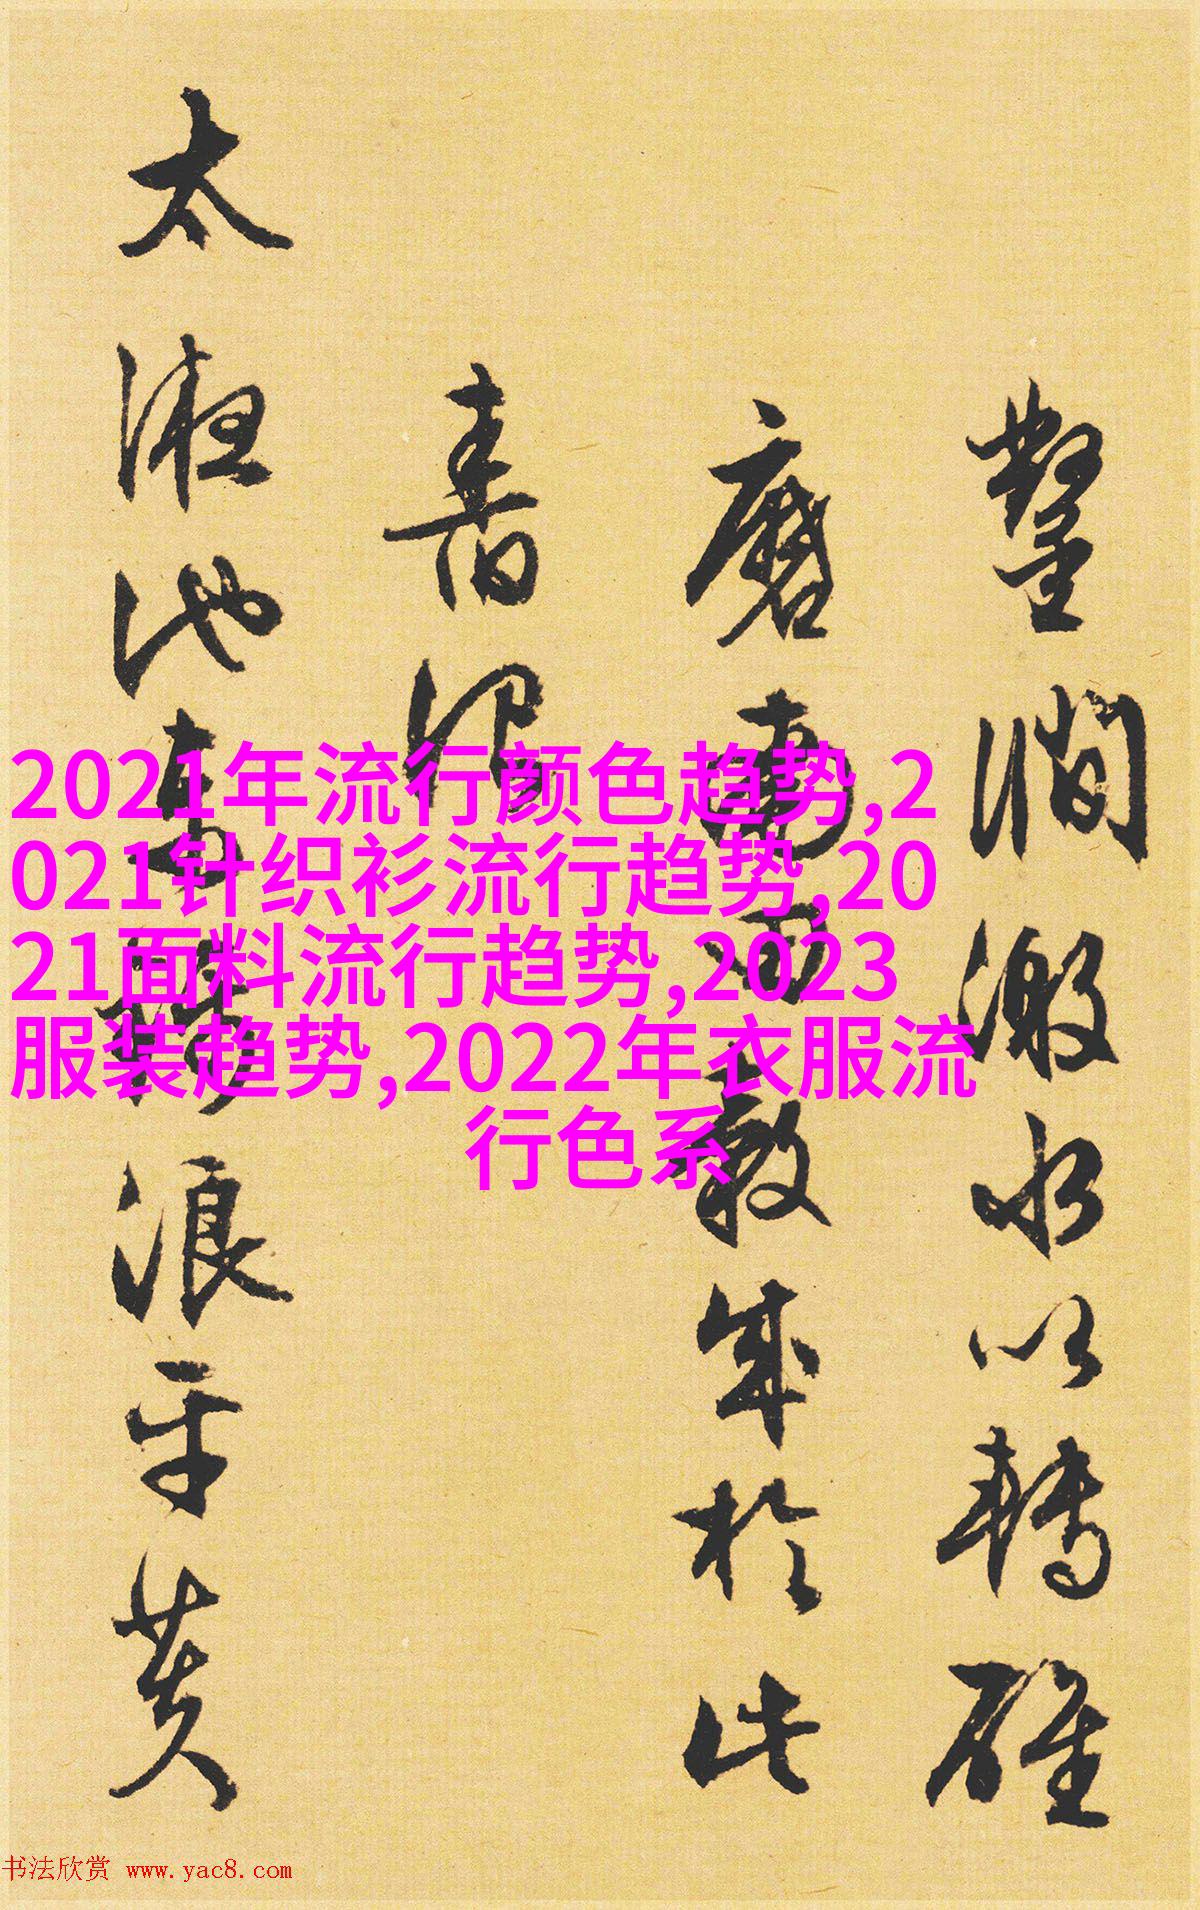 鑿澗激水以轉碓
磨
於此
嘉
太液池
浪平黄
2021年流行颜色趋势,2
021针织衫流行趋势,20
21面料流行趋势,2023
服装趋势,2022年衣服流
行色系
书法欣赏 www.yac8.com